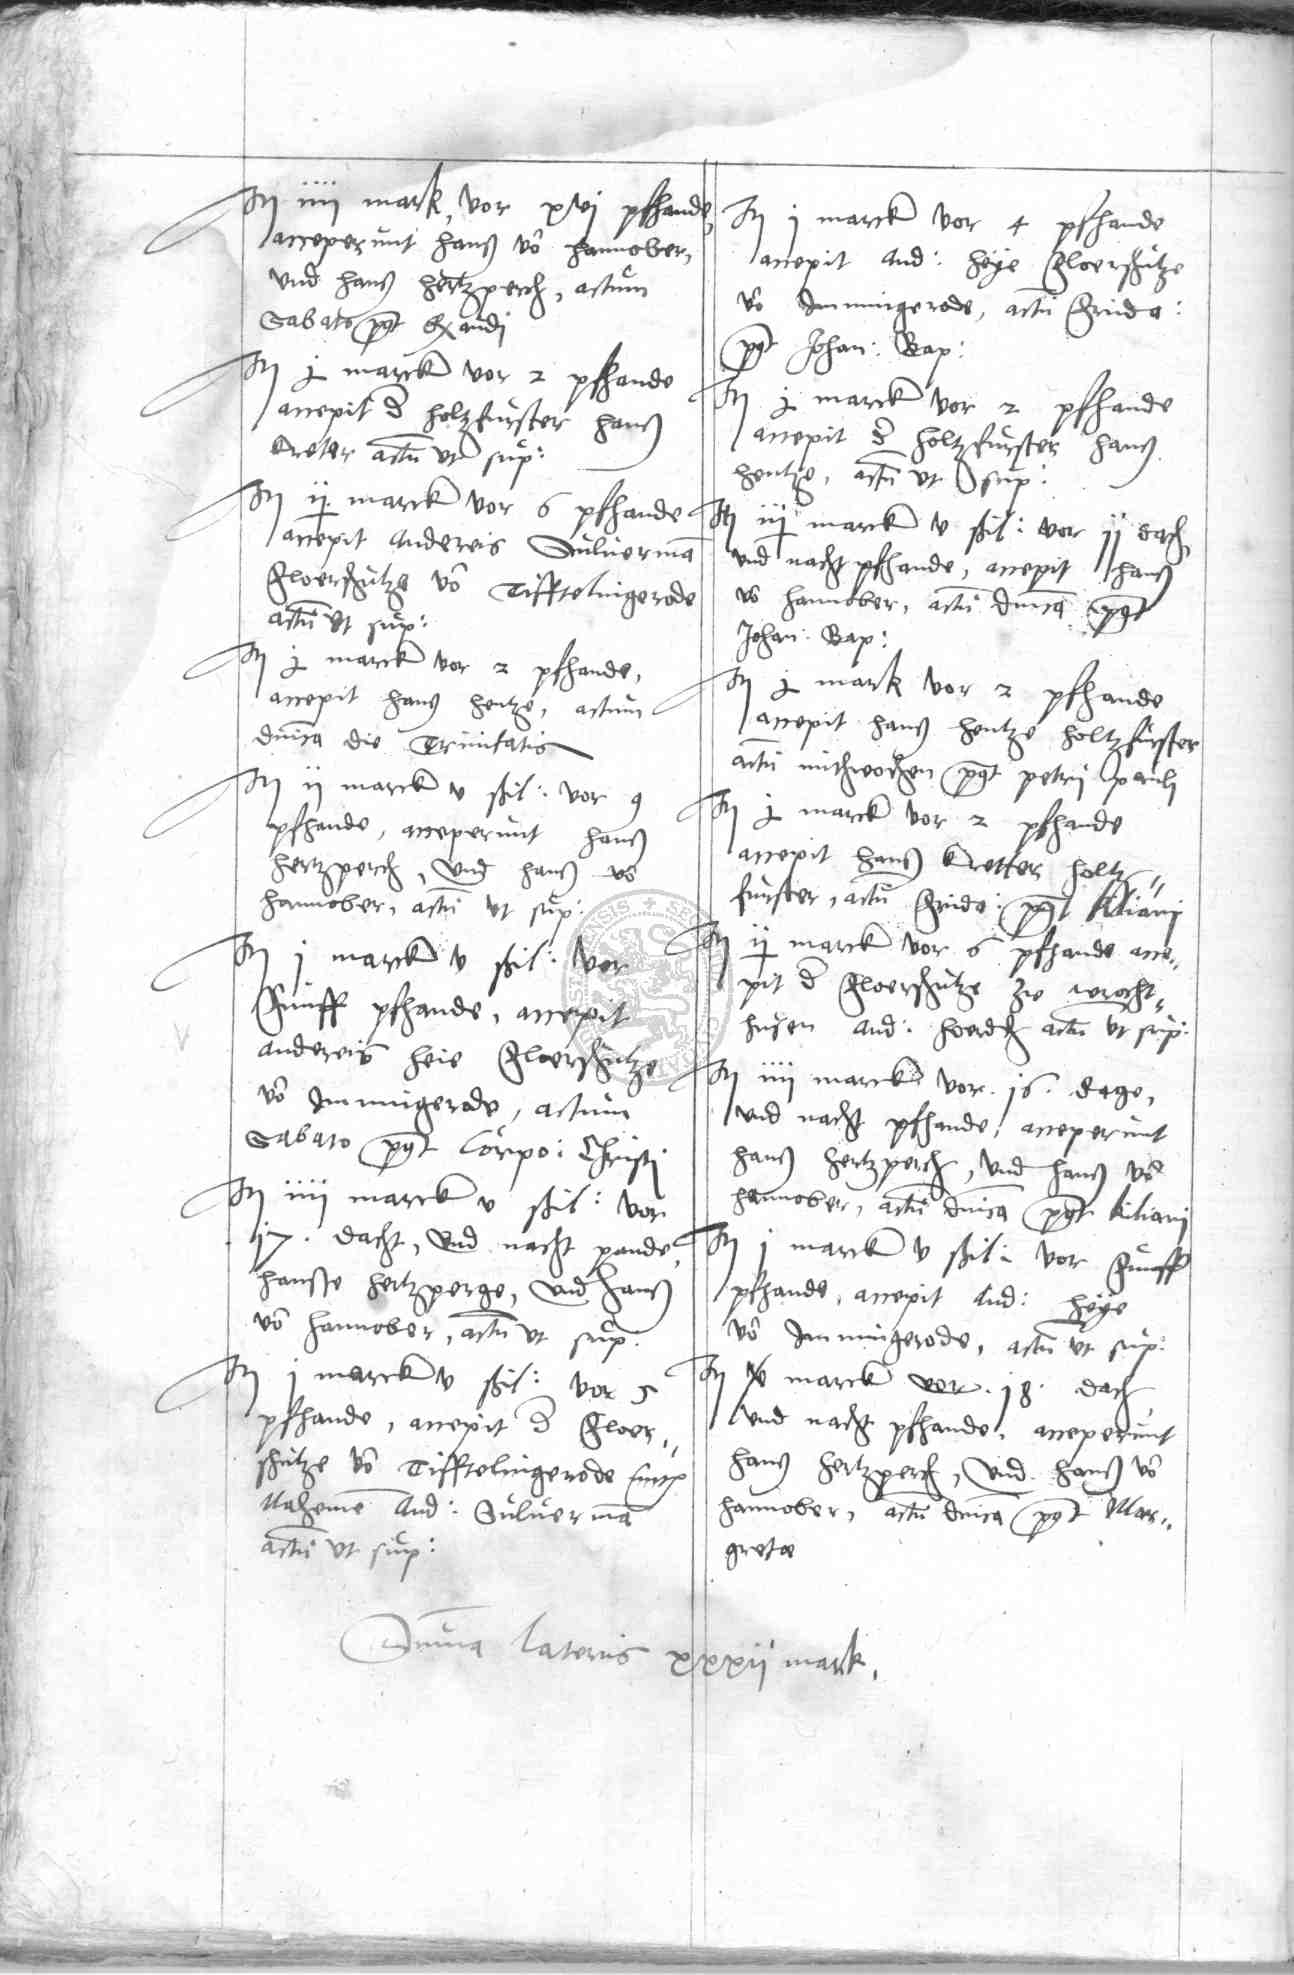 Itm iiii mark, vor xvj pfhande,
acceperunt hanß vō hannober,
vnd hanß hertzperch, actum
Sabato post Exaudi
Itm j marck vor 2 pfhande
accepit d' holtzfurster hanß
Kreter actū vt sup:
Itm ij marck vor 6 pfhande
accepit Andereis Suluermā
Floershutze vō Tifftelingerode
actū vt sup:
Itm j marck vor 2 pfhande,
accepit hanß hentze, actum
dnica die Trinitatis
Itm ii marck v ßil: vor 9
pfhande, acceperunt hanß
hertzperch, vnd hanß vō
hannober, actū vt sup:
Itm j marck v ßil: vor
Funff pfhande, accepit
andereis heie Floershutze
vō Immingerode, actum
Sabato post Corpo: Christi
Itm iiii marck v ßil: vor
17. dacht, vnd nacht pande,
hansse hertzperge, vnd hanß
vō hannober, actū vt sup:
Itm j marck v ßil: vor 5
pfhande, accepit d' Floer„
shutze vō Tifftelingerode
Nahemē And: Suluermā
actū vt sup:
Itm j marck vor 4 pfhande
accepit And: heye Floershutze
vō Immingerode, actū Frida:
post Johan: Bap:
Itm j marck vor 2 pfhande
accepit d' holtzfurster hanß
hentze, actū vt sup:
Itm iij marck v ßil: vor ij dach,
vnd nacht pfhande, accepit hanß
vō hannober, actū dnica post
Johan: Bap:
Itm j mark vor 2 pfhande
accepit hanß hentze holtzfurster
actū mithwochen post petri pauli
Itm j marck vor 2 pfhande
accepit hanß Kretter holtz„
furster, actū Frida: post Kiliani
Itm ij marck vor 6 pfhande acce„
pit d' Floershutze zw wrocht„
husen And: hoerdh actū vt sup:
Itm iiii marck vor. 16. dage,
vnd nacht pfhande, acceperunt
hanß hertzperch, vnd hanß vō
hannober, actū dnica post Kiliani
Itm j marck v ßil: vor Funff
pfhande, accepit And: heye
vō Immingerode, actū vt sup:
Itm marck vor. 18. dach,
vnd nacht pfhande, acceperunt
hanß hertzperch, vnd hanß vō
hannober, actū dnica post Mar„
gretæ
Suma lateris xxxii mark,